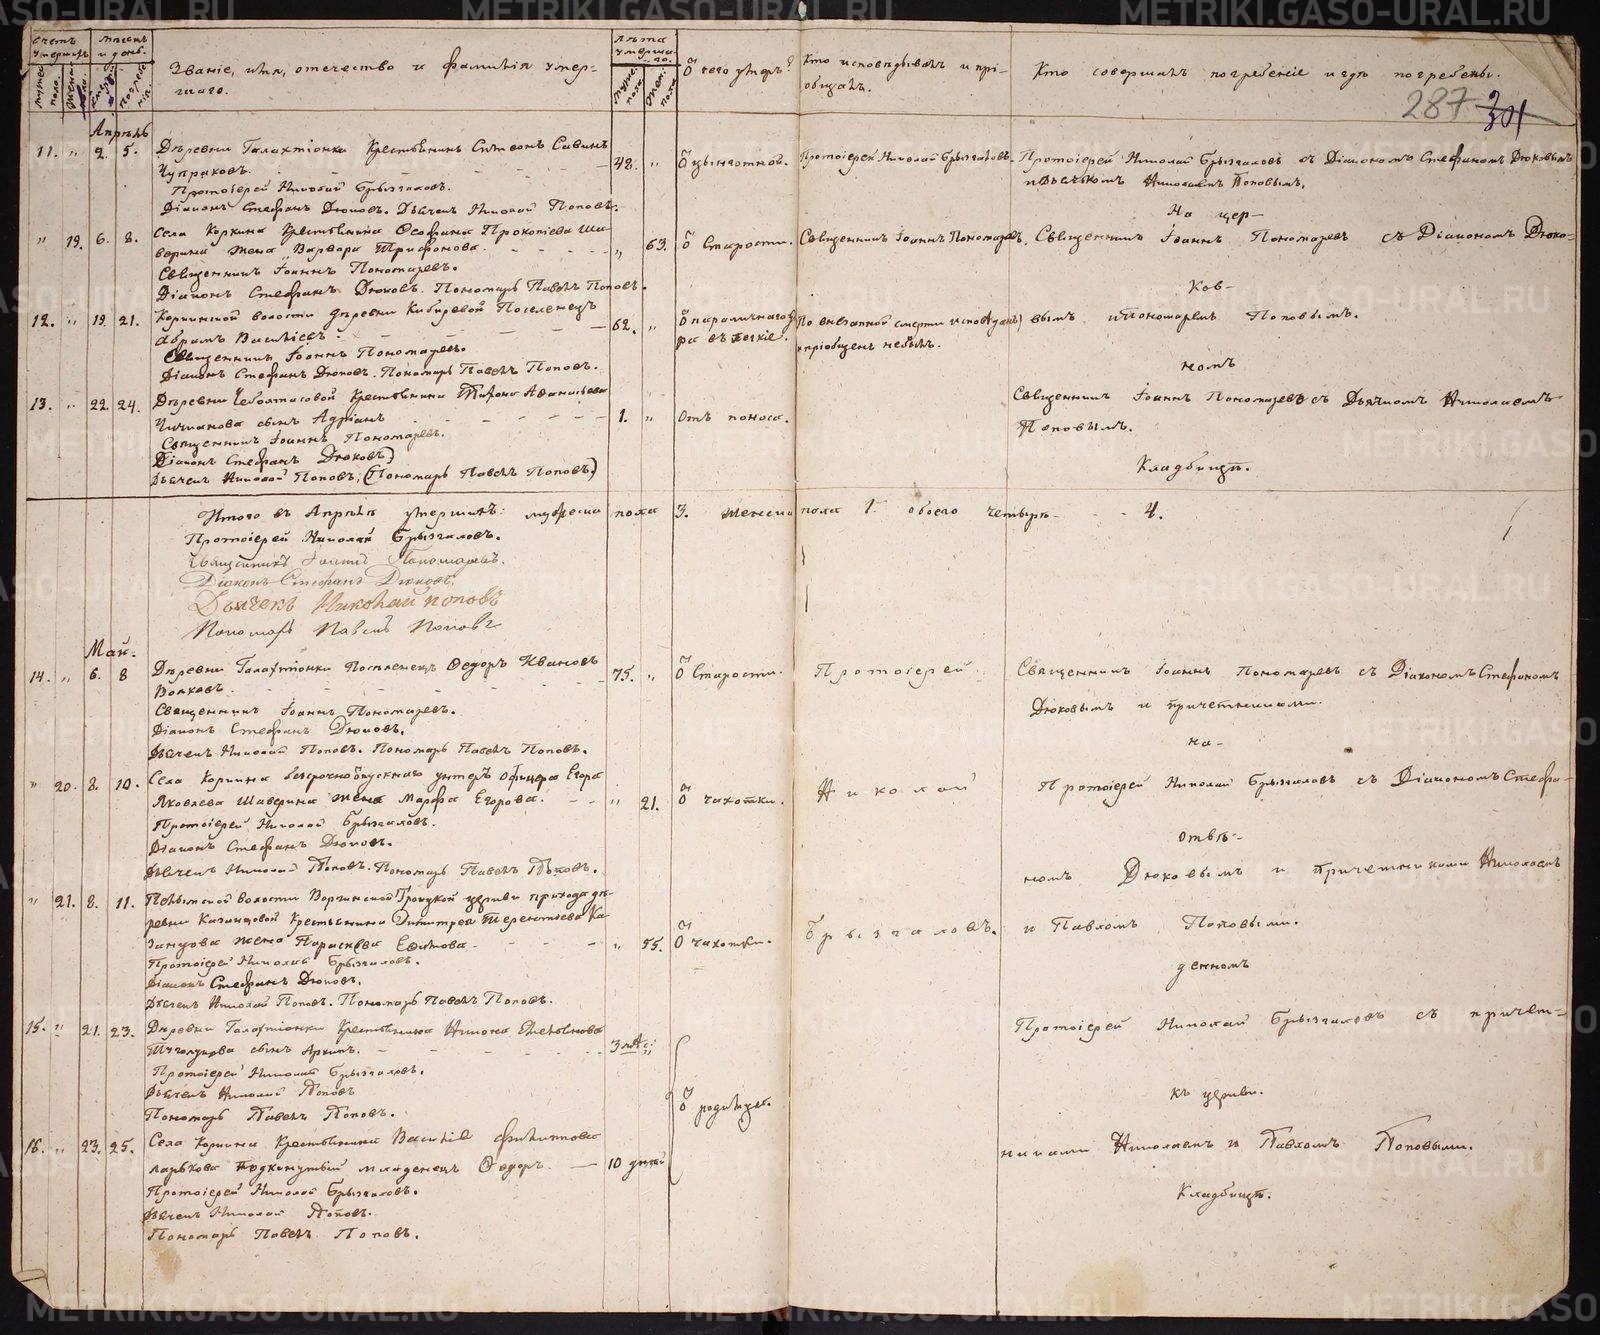 METRIKI.GASO-URAL.RU
Счетъ умершихъ
Мѣсяцъ и день.
Званіе, имя, отечество и фамилія умер-
шаго.
Лѣта умерша-го.
Отъ чего умеръ?
Кто исповѣдывалъ и прі-
общалъ.
Кто совершалъ погребеніе и гдѣ погребены.
287 301
Апрѣль
11. „ 2. 5. Деревни Галактіонки Крестьянинъ Симеонъ Савинъ
Чупраковъ. 48. „ Отъ цынготной. Протоіерей Николай Брызгаловъ. Протоіерей Николай Брызгаловъ съ Діакономъ Стефаномъ Дюковымъ
и Дьячкомъ Николаемъ Поповымъ.
Протоіерей Николай Брызгаловъ.
Діаконъ Стефанъ Дюковъ. Дьячекъ Николай Поповъ.
На цер-
„ 19. 6. 8. Села Коркина Крестьянина Ѳеофана Прокопіева Ша-
верина жена Варвара Трифонова. „ 63. Отъ Старости. Священникъ Іоаннъ Пономаревъ. Священникъ Іоаннъ Пономаревъ съ Діакономъ Дюко-
Священникъ Іоаннъ Пономаревъ.
Діаконъ Стефанъ Дюковъ. Пономарь Павелъ Поповъ.
ков-
12. „ 19. 21. Коркинской волости деревни Кибиревой Поселенецъ
Абрамъ Васильевъ. 62. „ Отъ параличнаго уда-
ра въ легкіе. По внезапной смерти исповѣданъ
и пріобщенъ не былъ. вымъ и Пономаремъ Поповымъ.
Священникъ Іоаннъ Пономаревъ.
Діаконъ Стефанъ Дюковъ. Пономарь Павелъ Поповъ.
номъ
13. „ 22. 24. Деревни Чеболтасовой Крестьянина Тихона Аѳанасьева
Чичканова сынъ Адріанъ 1. „ Отъ поноса. Священникъ Іоаннъ Пономаревъ съ Дьячкомъ Николаемъ
Поповымъ.
Священникъ Іоаннъ Пономаревъ.
Діаконъ Стефанъ Дюковъ)
Дьячекъ Николай Поповъ; (Пономарь Павелъ Поповъ.)
Кладбищѣ.
Итого въ Апрѣлѣ умершихъ: мужеска пола 3. женска пола 1. обоего четыре - - 4.
Протоіерей Николай Брызгаловъ.
Священникъ Іоаннъ Пономаревъ.
Діаконъ Стефанъ Дюковъ.
Дьячекъ Николай Поповъ
Пономарь Павелъ Поповъ
Май.
14. „ 6. 8 Деревни Галактіонки Поселенецъ Ѳедоръ Ивановъ
Волковъ. 75. „ Отъ Старости. Протоіерей Священникъ Іоаннъ Пономаревъ съ Діакономъ Стефаномъ
Дюковымъ и причетниками.
Священникъ Іоаннъ Пономаревъ.
Діаконъ Стефанъ Дюковъ.
Дьячекъ Николай Поповъ. Пономарь Павелъ Поповъ.
на-
„ 20. 8. 10. Села Коркина безсрочноотпускнаго унтеръ офицера Егора
Яковлева Шаверина жена Марфа Егорова. „ 21. Отъ чахотки. Николай Протоіерей Николай Брызгаловъ съ Діакономъ Стефа-
Протоіерей Николай Брызгаловъ.
Діаконъ Стефанъ Дюковъ.
Дьячекъ Николай Поповъ. Пономарь Павелъ Поповъ.
отвѣ-
номъ Дюковымъ и причетниками Николаемъ
„ 21. 8. 11. Пелымской волости Троицкой церкви прихода де-
ревни Казанцовой Крестьянина Димитрея Терентьева Ка-
занцова жена Параскева Ефимова. „ 55. Отъ чахотки. Брызгаловъ. и Павломъ Поповыми.
Протоіерей Николай Брызгаловъ.
Діаконъ Стефанъ Дюковъ.
Дьячекъ Николай Поповъ. Пономарь Павелъ Поповъ.
денномъ
15. „ 21. 23. Деревни Галактіонки Крестьянина Никона Емельянова
сынъ Архипъ. 3 мѣс: Протоіерей Николай Брызгаловъ съ причет-
Протоіерей Николай Брызгаловъ.
Дьячекъ Николай Поповъ
Пономарь Павелъ Поповъ.
Отъ родимца.
къ церкви.
16. „ 23. 25. Села Коркина Крестьянина Василія Филиппова
подкинутый младенецъ Ѳедоръ. 10 дней никами Николаемъ и Павломъ Поповыми.
Протоіерей Николай Брызгаловъ.
Дьячекъ Николай Поповъ.
Пономарь Павелъ Поповъ.
Кладбищѣ.